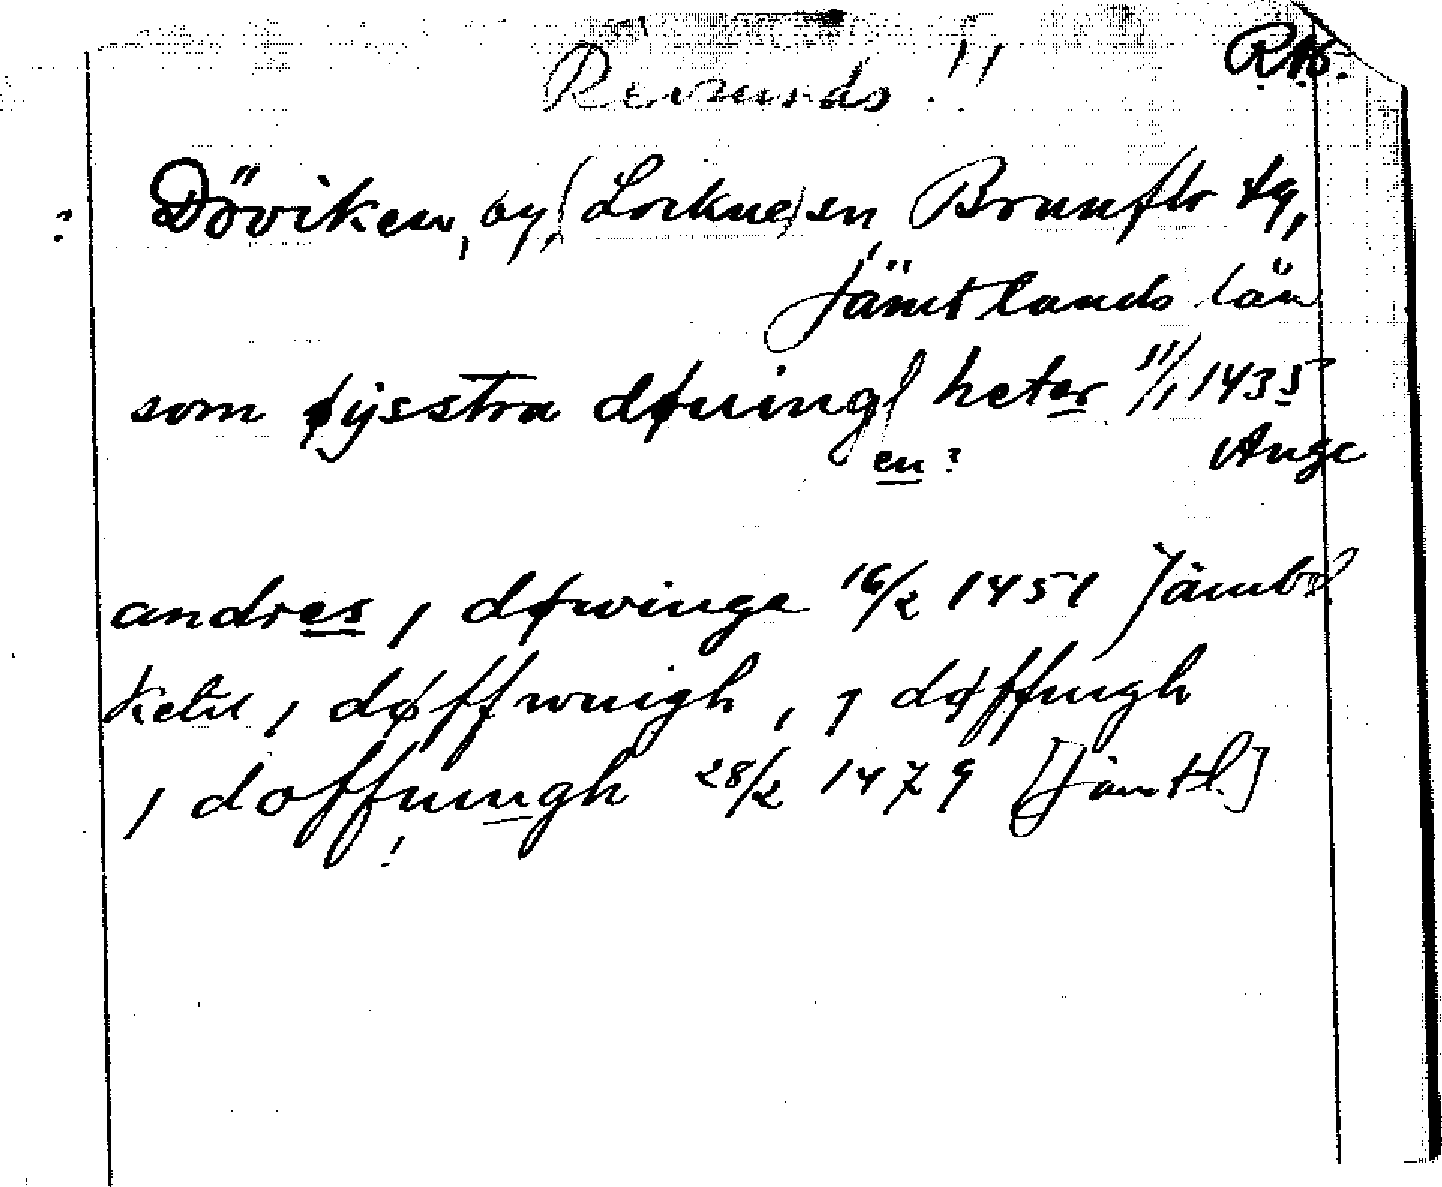 Revsunds !!
RAp.
? Döviken, by, (Lockne) sn, Brunflo tg,
Jämtlands län
som øysstra døuing heter 11/1 1435
en? Ange
andres i døwinge 16/2 1451 Jämtl
Ketil i døffwnigh, i døffnigh
i doffuungh 28/2 1479 [Jämtl.]
!